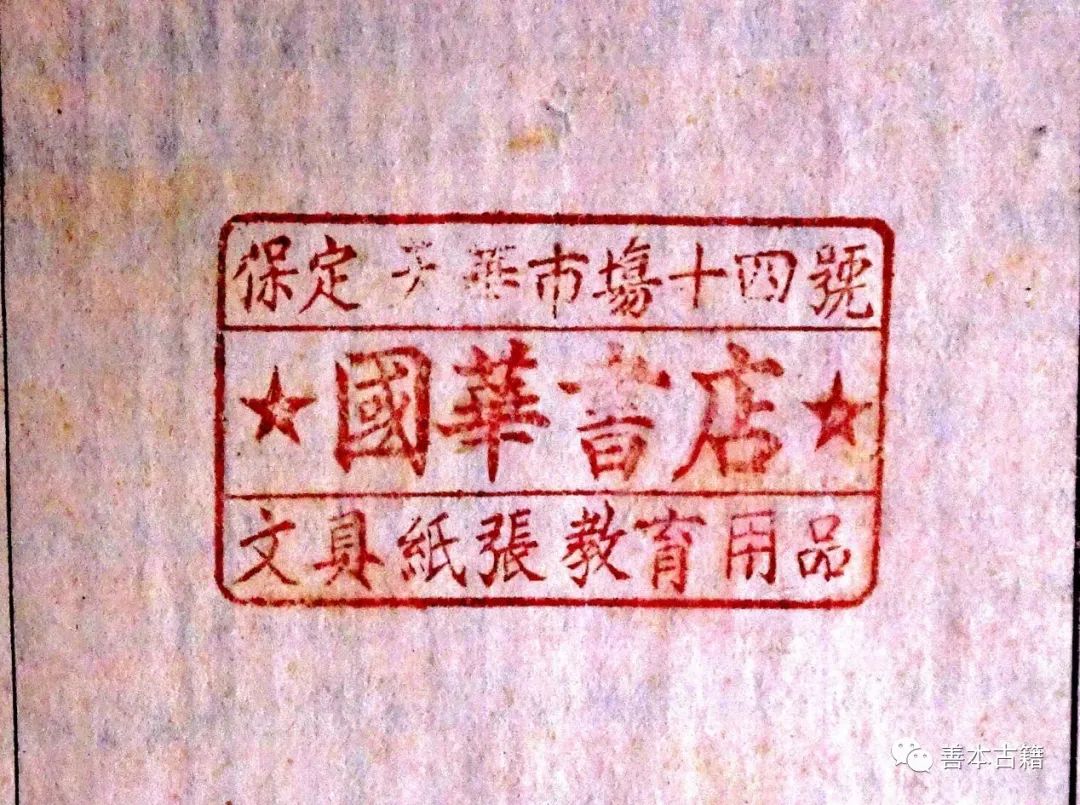 保定 市場十四號
★國華書店★
文具紙張教育用品
善本古籍